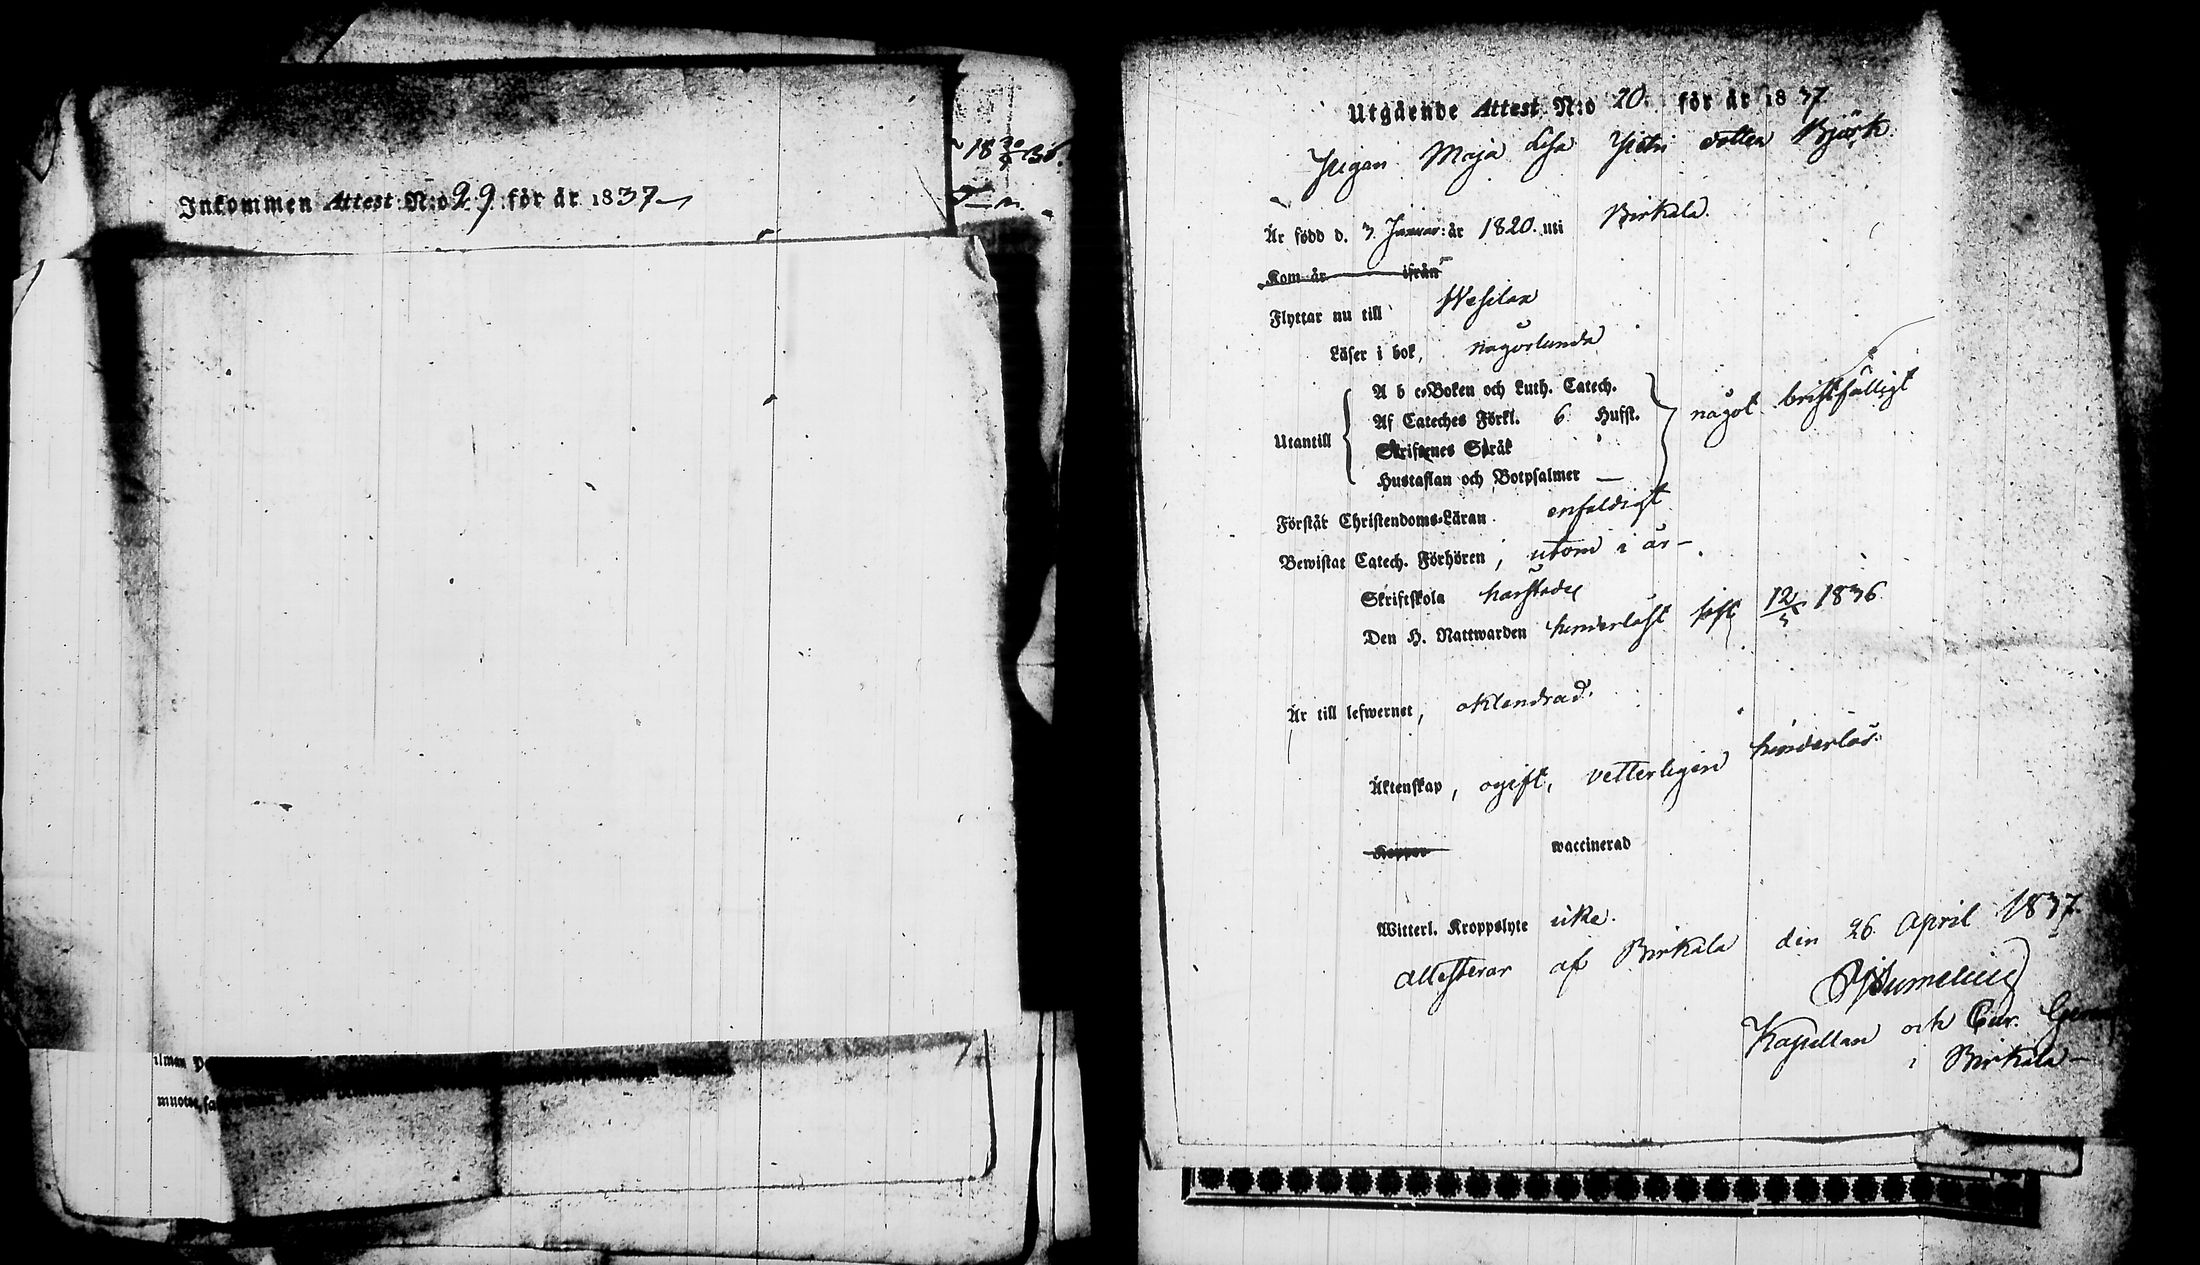 Inkommen Attest N:o 29 för år 1837
18 30/9 36.
ilman
muotoe, sa
Utgående Attest N:o 20. för är 1837
Pigan Maja Lisa Petri dotter Björk.
Är född d. 3. Januar: år 1820. uti Birkala.
Kom år ifrån
Flyttar nu till Wesilax
Läser i bok, någorlunda
A b c-Boken och Luth. Catech.
Af Cateches Förkl. 6 Hufst. något bristfälligt
Utantill
Skriftenes Språk
Hustaflan och Botpsalmer —
Förstår Christendoms-Läran enfaldigt
Bewistat Catech. Förhören, utom i år —
Skriftskola harstädes
Den H. Nattwarden hinderlöst sist 12/3 1836
Är till lefwernet, oklandrad.
Äktenskap, ogift, vetterligen hinderlös.
Koppor waccinerad
Witterl. Kroppslyte icke.
Attesterar af Birkala den 26 April 1837.
Kapellan och Cur. Ger
i Birkala —